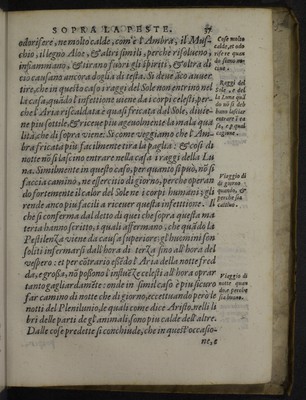 SOPRA LA PESTE. 37
odorifere, ne molto calde, com'è l'Ambra, il Mus-
chio, il legno Aloe, & altri simili, perche risoluono,
infiammano, & tirano fuori gli spiriti, & oltra di
ciò causano ancora doglia di testa. Si deue ãco auuer
tire, che in questo caso i raggi del Sole non entrino nel
la casa, quãdo l'infettione viene da i corpi celesti, per-
che l'Aria riscaldata è quasi fregata dal Sole, diuie-
ne piu sottile, & riceue piu ageuolmente la mala qua
lità, che di sopra viene. Sì come veggiamo che l'Am
bra fricata piu facilmente tira la paglia: & cosi di
notte nõ si lascino entrare nella casa i raggi della Lu
na. Similmente in questo caso, per quanto si può, nõ si
faccia camino, ne essercitio di giorno, perche operan
do fortemente il calor del Sole ne i corpi humani, gli
rende anco piu facili a riceuer questa infettione. Il
che si conferma dal detto di quei che sopra questa ma
teria hanno scritto, i quali affermano, che quãdo la
Pestilenza viene da causa superiore, gl'huomini son
soliti infermarsi dall'hora di terza sino all'hora del
vespero: et per cõtrario essẽdo l'Aria della notte fred
da, e grossa, nõ possono l'influẽze celesti all'hora oprar
tanto gagliardamẽte: onde in simil caso è piu sicuro
far camino di notte che di giorno, eccettuando però le
notti del Plenilunio, le quali come dice Aristo. nelli li
bri delle parti de gl'animali, sono piu calde dell'altre.
Dalle cose predette si conchiude, che in quest'occasio-
ne, e
Cose molto
calde, et odo
rifere quan
do siano no-
ciue.
Raggi del
Sole, e del
la Luna quã
do nõ si deb
bano lasciar
entrare ĩ ca
sa, e p qual
cagione.
Viaggio di
di giorno
quando, &
perche sia
cattiuo.
Viaggio di
notte quan
do, e perche
sia buono.